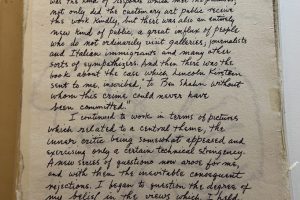 was the kind of response which most
not only did the customary art public receive
this work kindly, but there was also an entirely
new kind of public, a great influx of people
who do not ordinarily visit galleries, journalists
and Italian immigrants and many other
sorts of sympathizers. And then there was the
book about the case which Lincoln Kirstein
sent to me, inscribed, "to Ben Shahn without
whom this crime could never have
been committed."
I continued to work in terms of pictures
which related to a central theme, the
inner critic being somewhat appeased and
exercising only a certain technical stringency.
A new series of questions now arose for me,
and with them the inevitable consequent
rejections. I began to question the degree of
my belief in the views which I held.